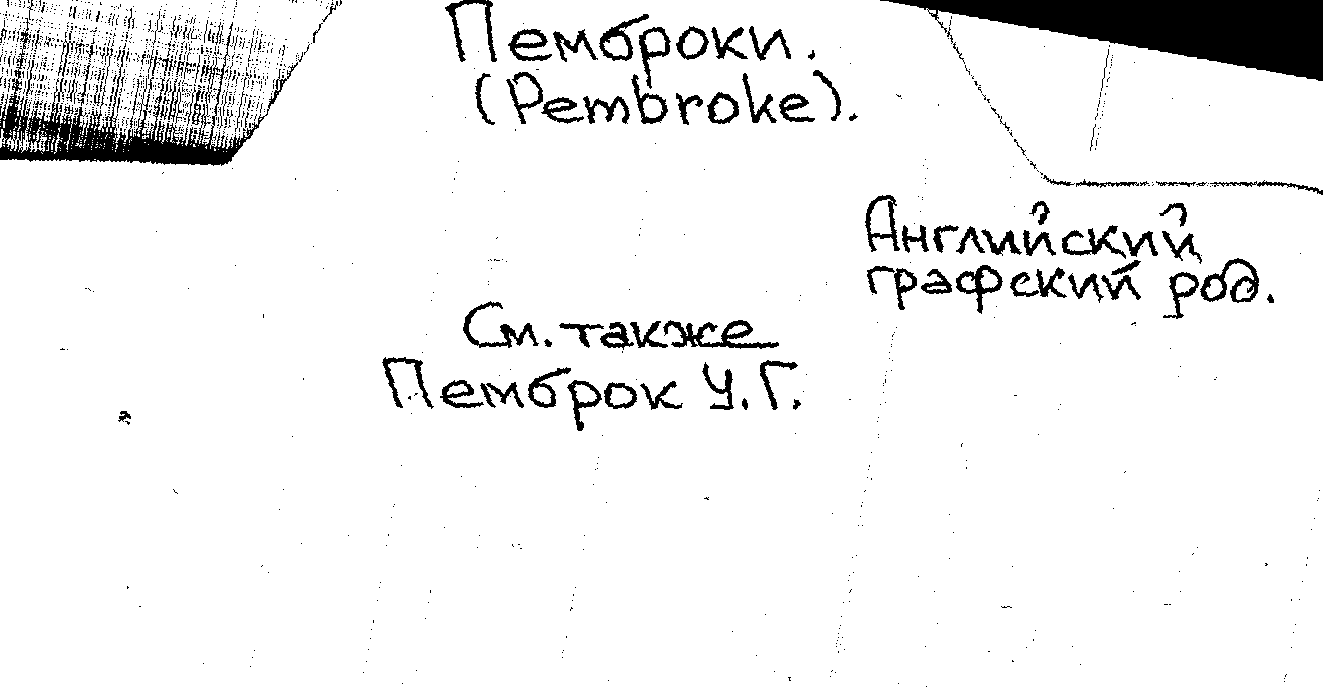 Пемброки.
(Pembroke).
Английский
графский род.
См. также
Пемброк У.Г.